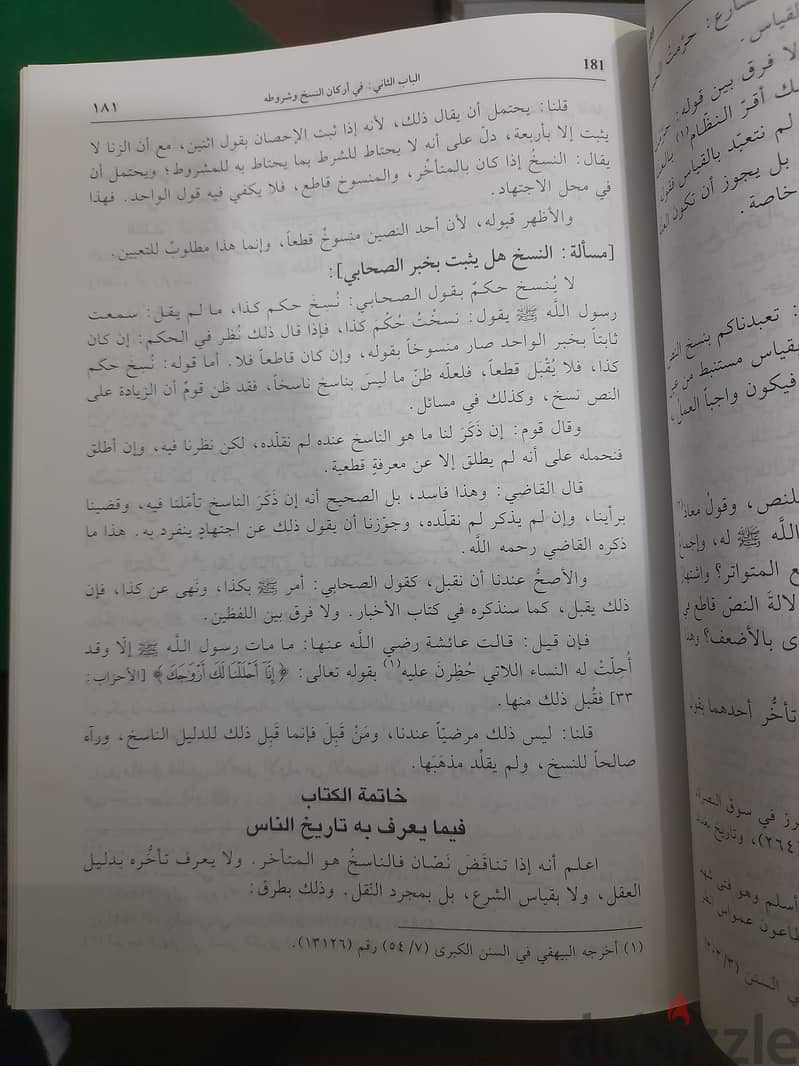 ١٨١
الباب الثاني: في أركان النسخ وشروطه
181
قلنا: يحتمل أن يقال ذلك، لأنه إذا ثبت الإحصان بقول اثنين، مع أن الزنا لا
يثبت إلا بأربعة، دلّ على أنه لا يحتاط للشرط بما يحتاط به للمشروط؛ ويحتمل أن
يقال: النسخُ إذا كان بالمتأخُر، والمنسوخ قاطع، فلا يكفي فيه قول الواحد. فهذا
في محل الاجتهاد.
والأظهر قبوله، لأن أحد النصين منسوخٌ قطعاً، وإنما هذا مطلوبٌ للتعيين.
[مسألة: النسخ هل يثبت بخبر الصحابي]:
لا يُنسخ حكمٌ بقول الصحابي: نُسِخَ حكم كذا، ما لم يقل: سمعت
رسول اللَّه ﷺ يقول: نسختُ حُكْمَ كذا، فإذا قال ذلك نُظر في الحكم: إن كان
ثابتاً بخبر الواحد صار منسوخاً بقوله، وإن كان قاطعاً فلا. أما قوله: نُسِخ حكم
كذا، فلا يُقْبَل قطعاً، فلعلّه ظنّ ما ليسَ بناسخ ناسخاً، فقد ظن قومٌ أن الزيادة على
النص نسخ، وكذلك في مسائل.
وقال قوم: إن ذَكَرَ لنا ما هو الناسخ عنده لم نقلّده، لكن نظرنا فيه، وإن أطلق
فنحمله على أنه لم يطلق إلا عن معرفةٍ قطعية.
قال القاضي: وهذا فاسد، بل الصحيح أنه إن ذَكَرَ الناسخ تأمّلنا فيه، وقضينا
برأينا، وإن لم يذكر لم نقلّده، وجوّزنا أن يقول ذلك عن اجتهادٍ ينفرد به. هذا ما
ذكره القاضي رحمه اللَّه.
والأصحُّ عندنا أن نقبل، كقول الصحابي: أمر ﷺ بكذا، ونَهى عن كذا، فإن
ذلك يقبل، كما سنذكره في كتاب الأخبار. ولا فرق بين اللفظين.
فإن قيل: قالت عائشة رضي اللَّه عنها: ما مات رسول اللَّه ﷺ إلّا وقد
أُحِلّتْ له النساء اللاتي حُظِرنَ عليه(١) بقوله تعالى: ﴿إِنَّآ أَحْلَلْنَا لَكَ أَزْوَٰجَكَ﴾ [الأحزاب:
٣٣] فقُبل ذلك منها.
قلنا: ليس ذلك مرضيّاً عندنا، ومَنْ قَبِلَ فإنما قَبِل ذلك للدليل الناسخ، ورآه
صالحاً للنسخ، ولم يقلّد مذهَبَها.
خاتمة الكتاب
فيما يعرف به تاريخ الناس
اعلم أنه إذا تناقَضَ نَصّان فالناسخُ هو المتأخر. ولا يعرف تأخُّره بدليل
العقل، ولا بقياس الشرع، بل بمجرد النّقل. وذلك بطرق:
(١) أخرجه البيهقي في السنن الكبرى (٧/ ٥٤) رقم (١٣١٢٦).
القياس.
لا فرق بين قوله:
ك أقرّ النظّام(١)
لم نتعبّد بالقياس
بل يجوز أن تكون
خاصة.
: تعبدناكم بنسخ
بقياس مستنبط من
فيكون واجباً العمل
للنص، وقولُ
اللَّه ﷺ له،
ع المتواتر؟
لالةَ النصّ قاطع
ى بالأضعف؟
تأخُّر أحدهما
رز في سوق
أسلم وهو فتى
طاعون عمواس
ي السنن